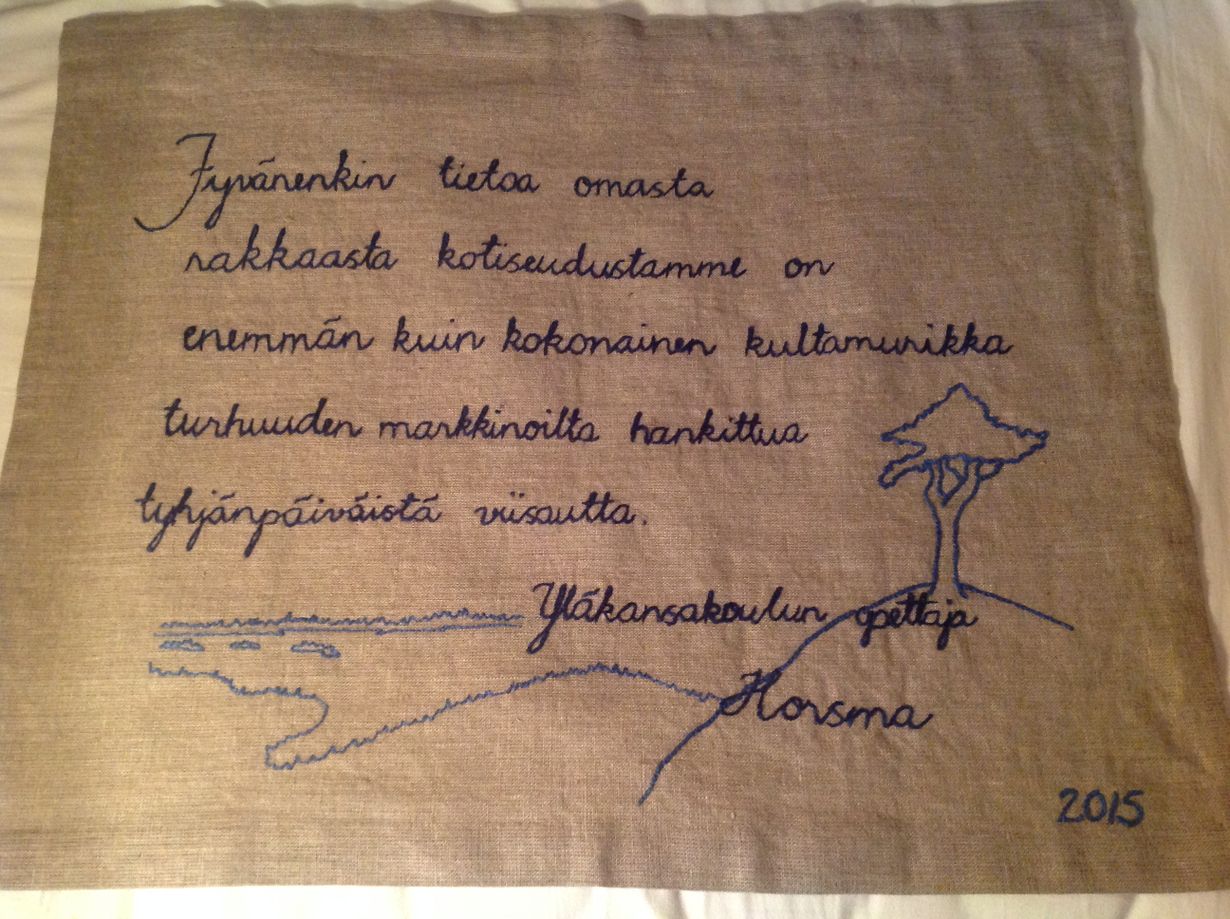 Jyvänenkin tietoa omasta
rakkaasta kotiseudustamme on
enemmän kuin kokonainen kultamurikka
turhuuden markkinoilta hankittua
tyhjänpäiväistä viisautta.
Yläkansakoulun opettaja
Horsma
2015